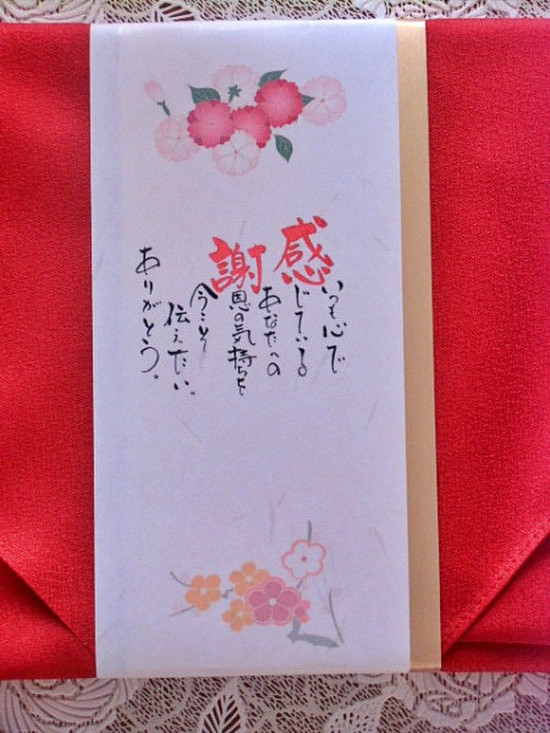 いつも心で
感じている
あなたへの
謝恩の気持ちを
今こそ
伝えたい。
ありがとう。